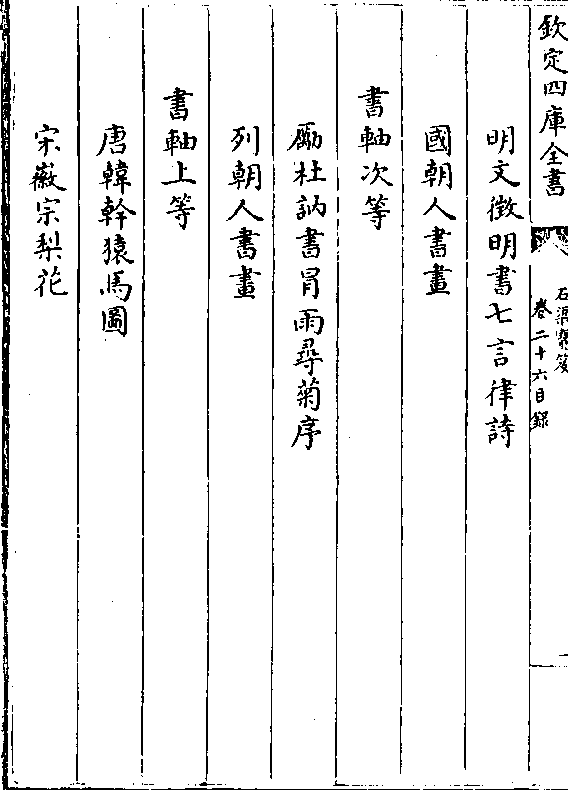 欽定四庫全書
石渠寶笈
卷二十六目録
明文徵明書七言律詩
國朝人書畫
書軸次等
勵杜訥書冒雨尋菊序
列朝人書畫
書軸上等
唐韓幹猿馬圖
宋徽宗梨花